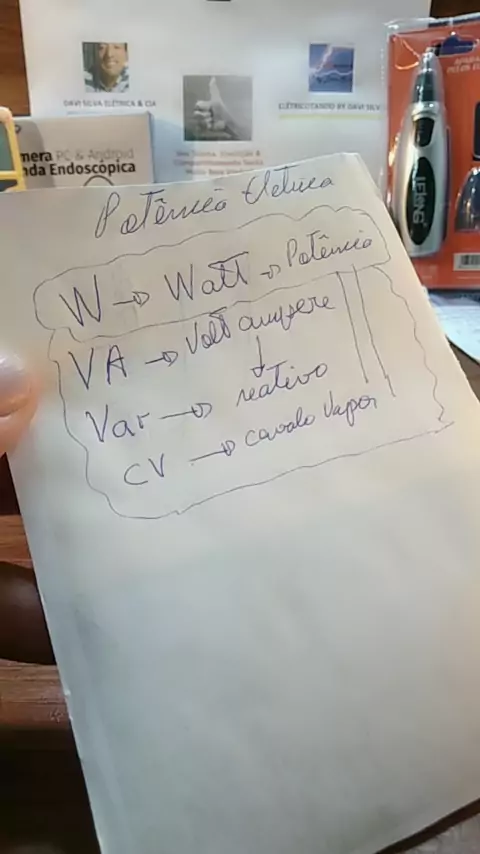 DAVI SILVA ELÉTRICA & CIA
ELETRICUTANDO BY DAVI SILV
mera PC & Android
nda Endoscópica
Potência Elétrica
W → Watt → Potência
VA → Volt ampere
Var → reativo
CV → cavalo Vapor